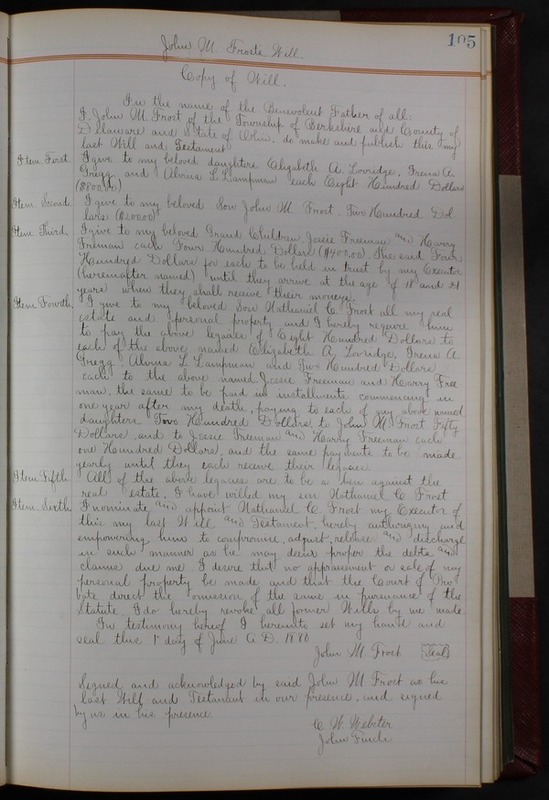 105
John M. Frosts Will.
Copy of Will.
In the name of the Benevolent Father of all:
I, John M. Frost of the Township of Berkshire and County of
Delaware and State of Ohio. do make and publish this my
last Will and Testament
Item First. I give to my beloved daughters Elizabeth A. Lovridge, Irena A.
Gregg and Alvina L. Lampman each Eight Hundred Dollars
($800.00)
Item Second. I give to my beloved Son John M Frost, Two Hundred Dol
lars ($200.00)
Item Third. I give to my beloved Grand Children Jessie Freeman and Harry
Freeman each Four Hundred Dollars ($400.00) The said Four
Hundred Dollars for each to be held in trust by my Executor
(hereinafter named) until they arrive at the age of 18 and 21
years when they shall receive their moneys.
Item Fourth. I give to my beloved Son Nathaniel C. Frost all my real
estate and personal property and I hereby require him
to pay the above legacies of Eight Hundred Dollars to
each of the above named Elizabeth A. Lovridge, Irena A.
Gregg Alvina L. Lampman and Two Hundred Dollars
each to the above named Jessie Freeman and Harry Free
man, the same to be paid in installments commencing in
one year after my death, paying to each of my above named
daughters Two Hundred Dollars, to John M Frost Fifty
Dollars, and to Jessie Freeman and Harry Freeman each
one Hundred Dollars, and the same payments to be made
yearly until they each receive their legacies.
Item Fifth. All of the above legacies are to be a lien against the
real estate, I have willed my son Nathaniel C Frost
Item Sixth. I nominate and appoint Nathaniel C. Frost my Executor of
this my last Will and Testament, hereby authorizing and
empowering him to compromise, adjust, release and discharge
in such manner as he may deem proper the debts and
claims due me. I desire that no appraisement or sale of my
personal property be made and that the Court of Pro
bate direct the omission of the same in pursuance of the
Statute. I do hereby revoke all former Wills by me made.
In testimony hereof I hereunto set my hand and
seal this 1st day of June A.D. 1880
John M Frost Seal
Signed and acknowledged by said John M Frost as his
last Will and Testament in our presence, and signed
by us in his presence
C. W. Webster
John Finch